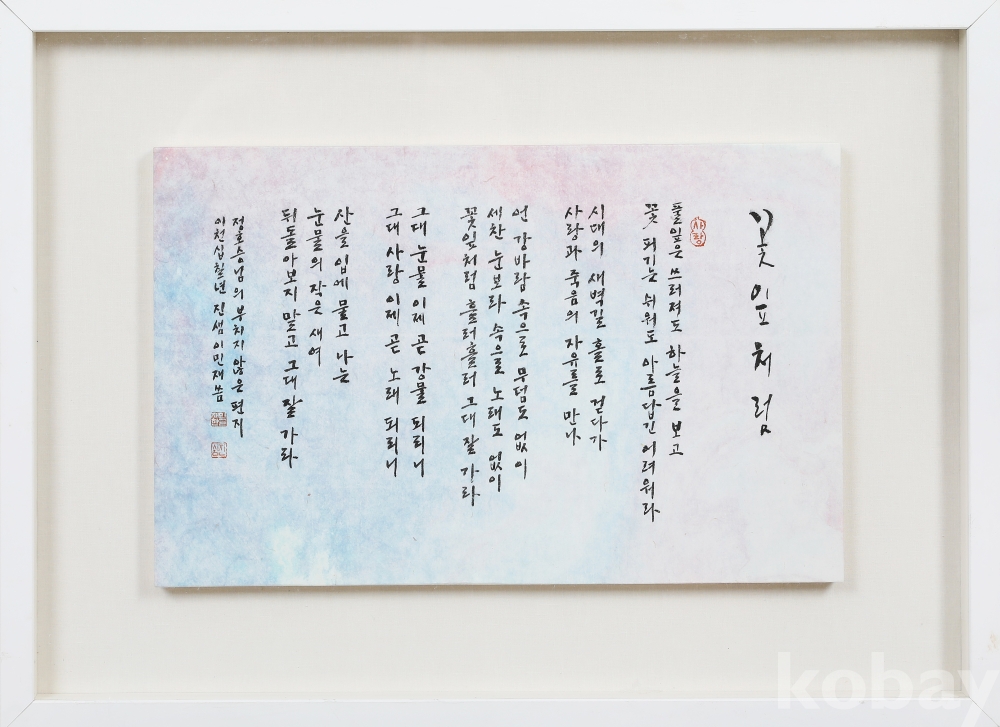 꽃잎처럼
사랑
풀잎은 쓰러져도 하늘을 보고
꽃 피기는 쉬워도 아름답긴 어려워라
시대의 새벽길 홀로 걷다가
사랑과 죽음의 자유를 만나
언 강바람 속으로 무덤도 없이
세찬 눈보라 속으로 노래도 없이
꽃잎처럼 흘러흘러 그대 잘 가라
그대 눈물 이제 곧 강물 되리니
그대 사랑 이제 곧 노래 되리니
산을 입에 물고 나는
눈물의 작은 새여
뒤돌아보지 말고 그대 잘 가라
정호승님의 부치지 않은 편지
이천십칠년 진샘 이민재 씀
kobay